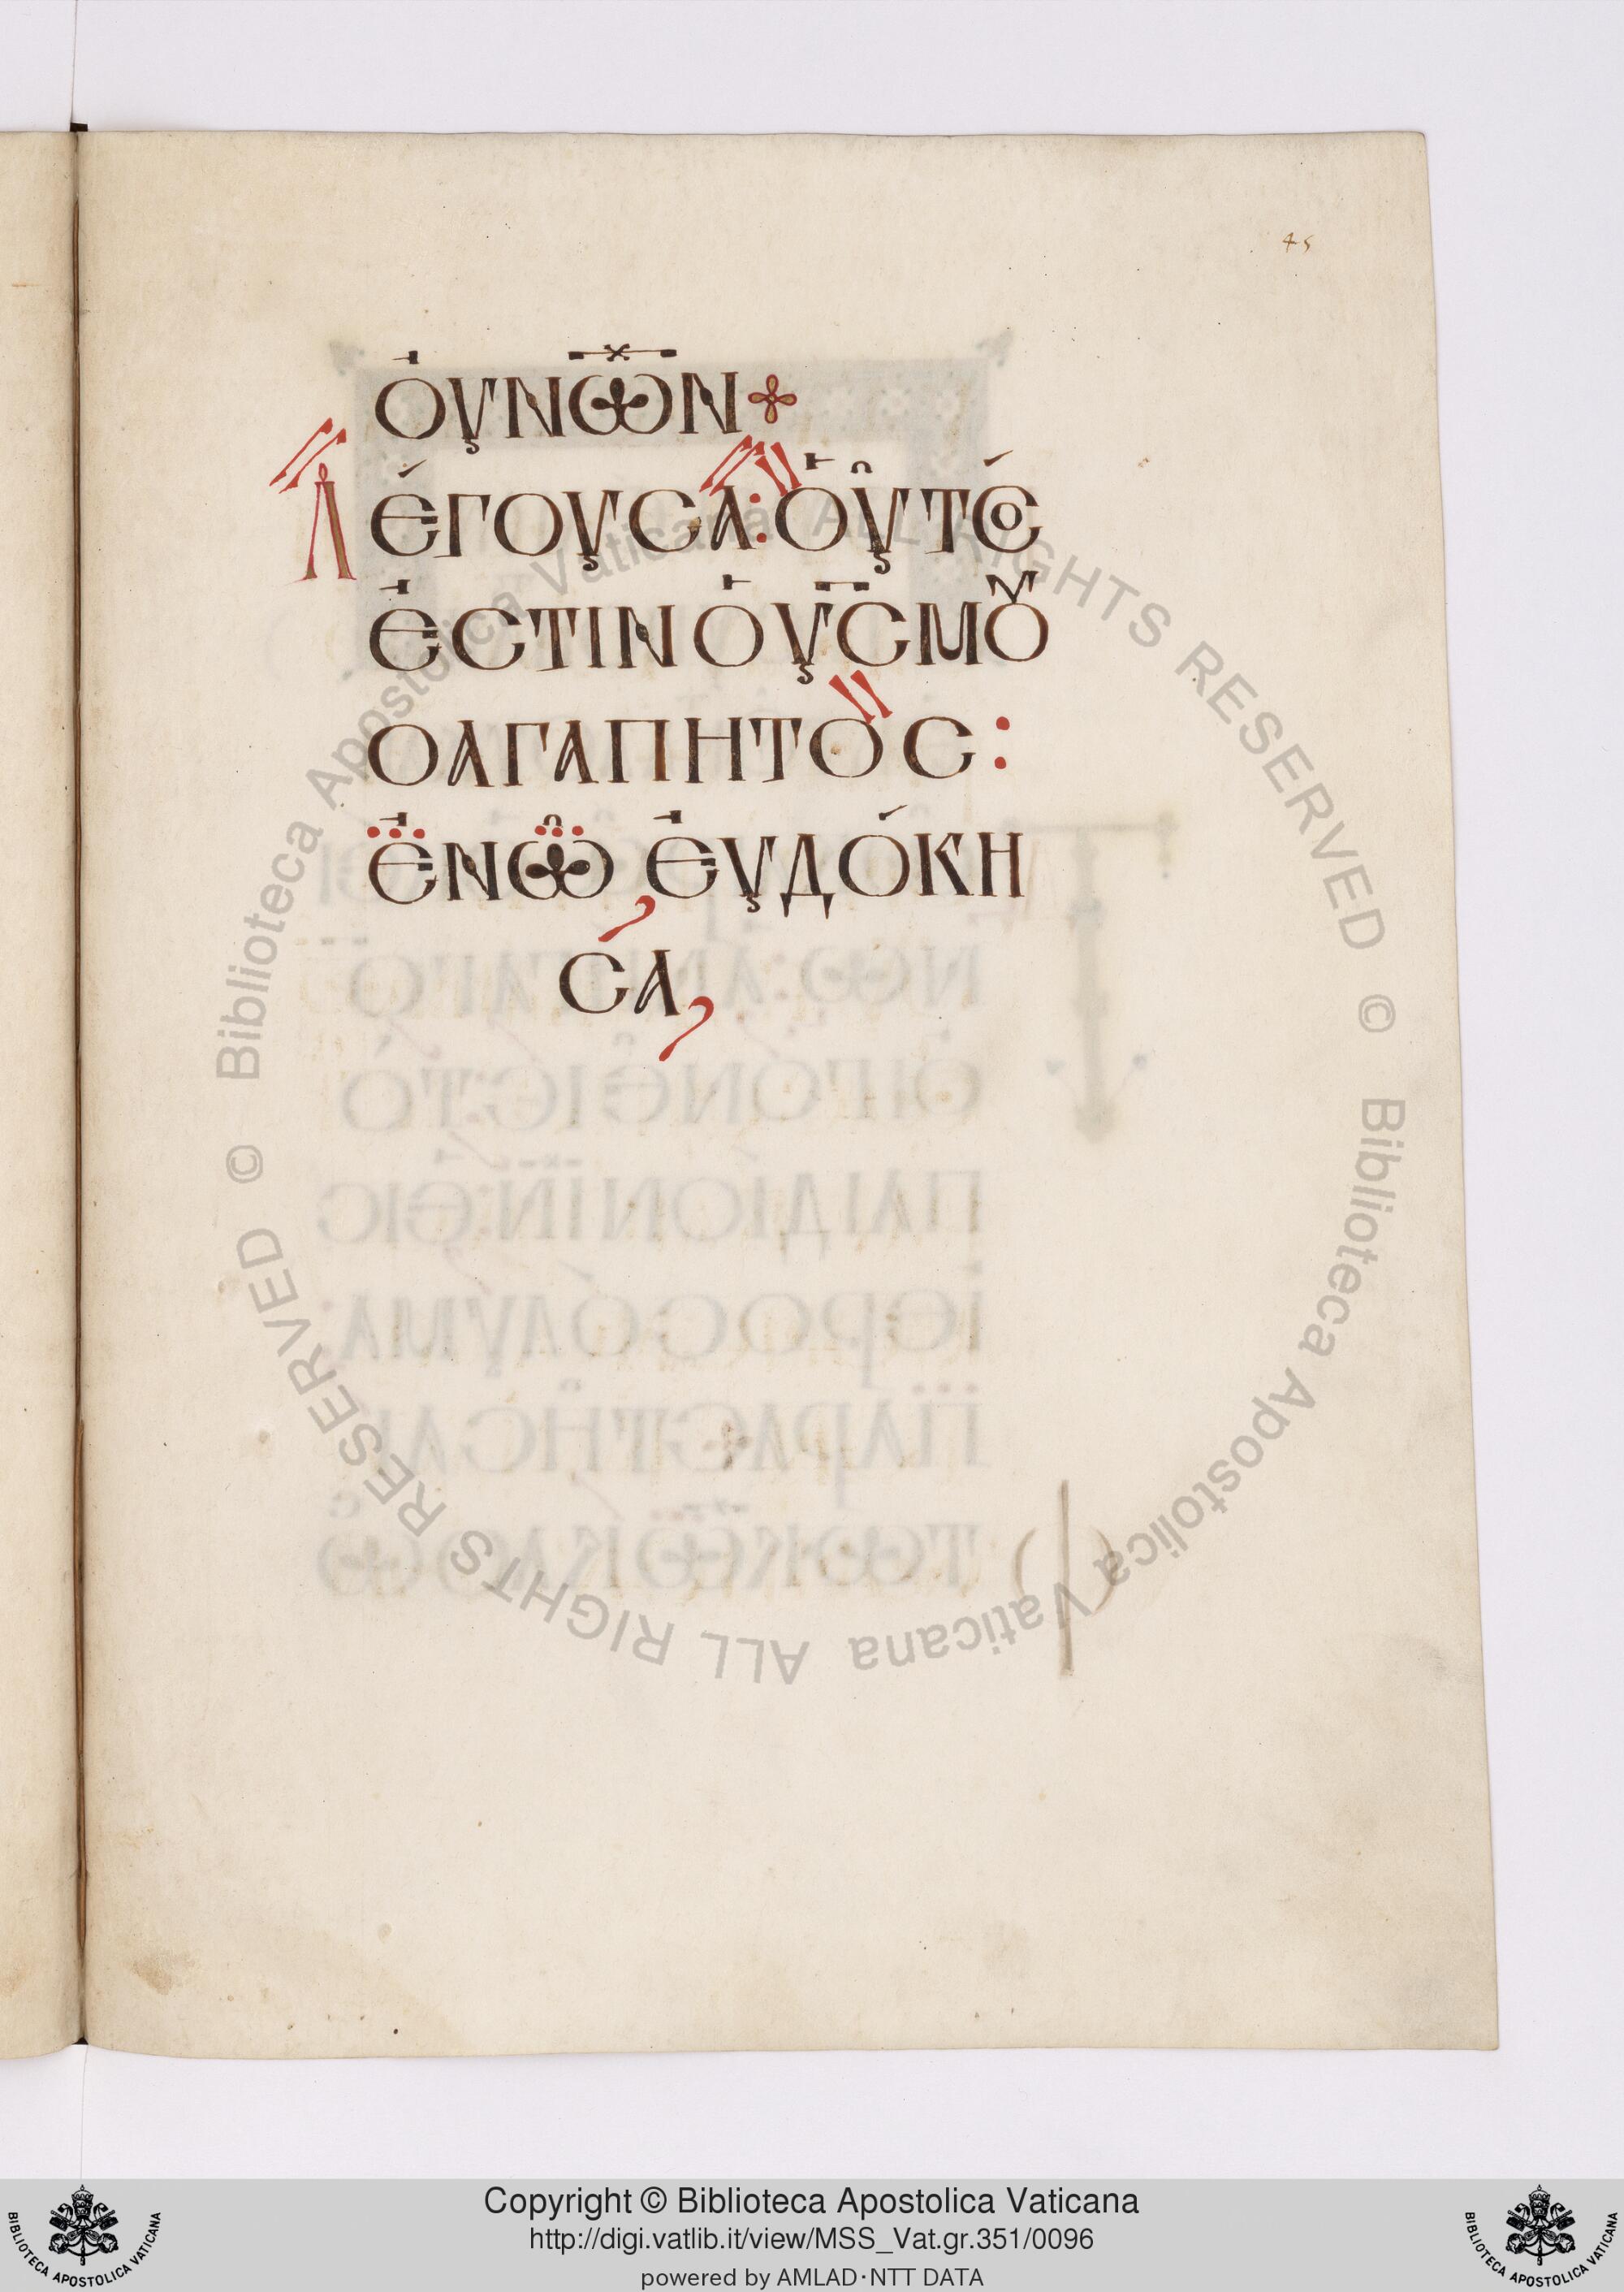 45
ὀυνω̅ν
Λέγουσα: ὅυτο̅ς
ἐστιν ὁ υ̅ς̅ μȢ
ο αγαπητος:
ἐν ὧ ἐυδόκη
σα,
© Biblioteca Apostolica Vaticana ALL RIGHTS RESERVED © Biblioteca Apostolica Vaticana ALL RIGHTS RESERVED
BIBLIOTECA APOSTOLICA VATICANA
Copyright © Biblioteca Apostolica Vaticana
http://digi.vatlib.it/view/MSS_Vat.gr.351/0096
powered by AMLAD·NTT DATA
BIBLIOTECA APOSTOLICA VATICANA